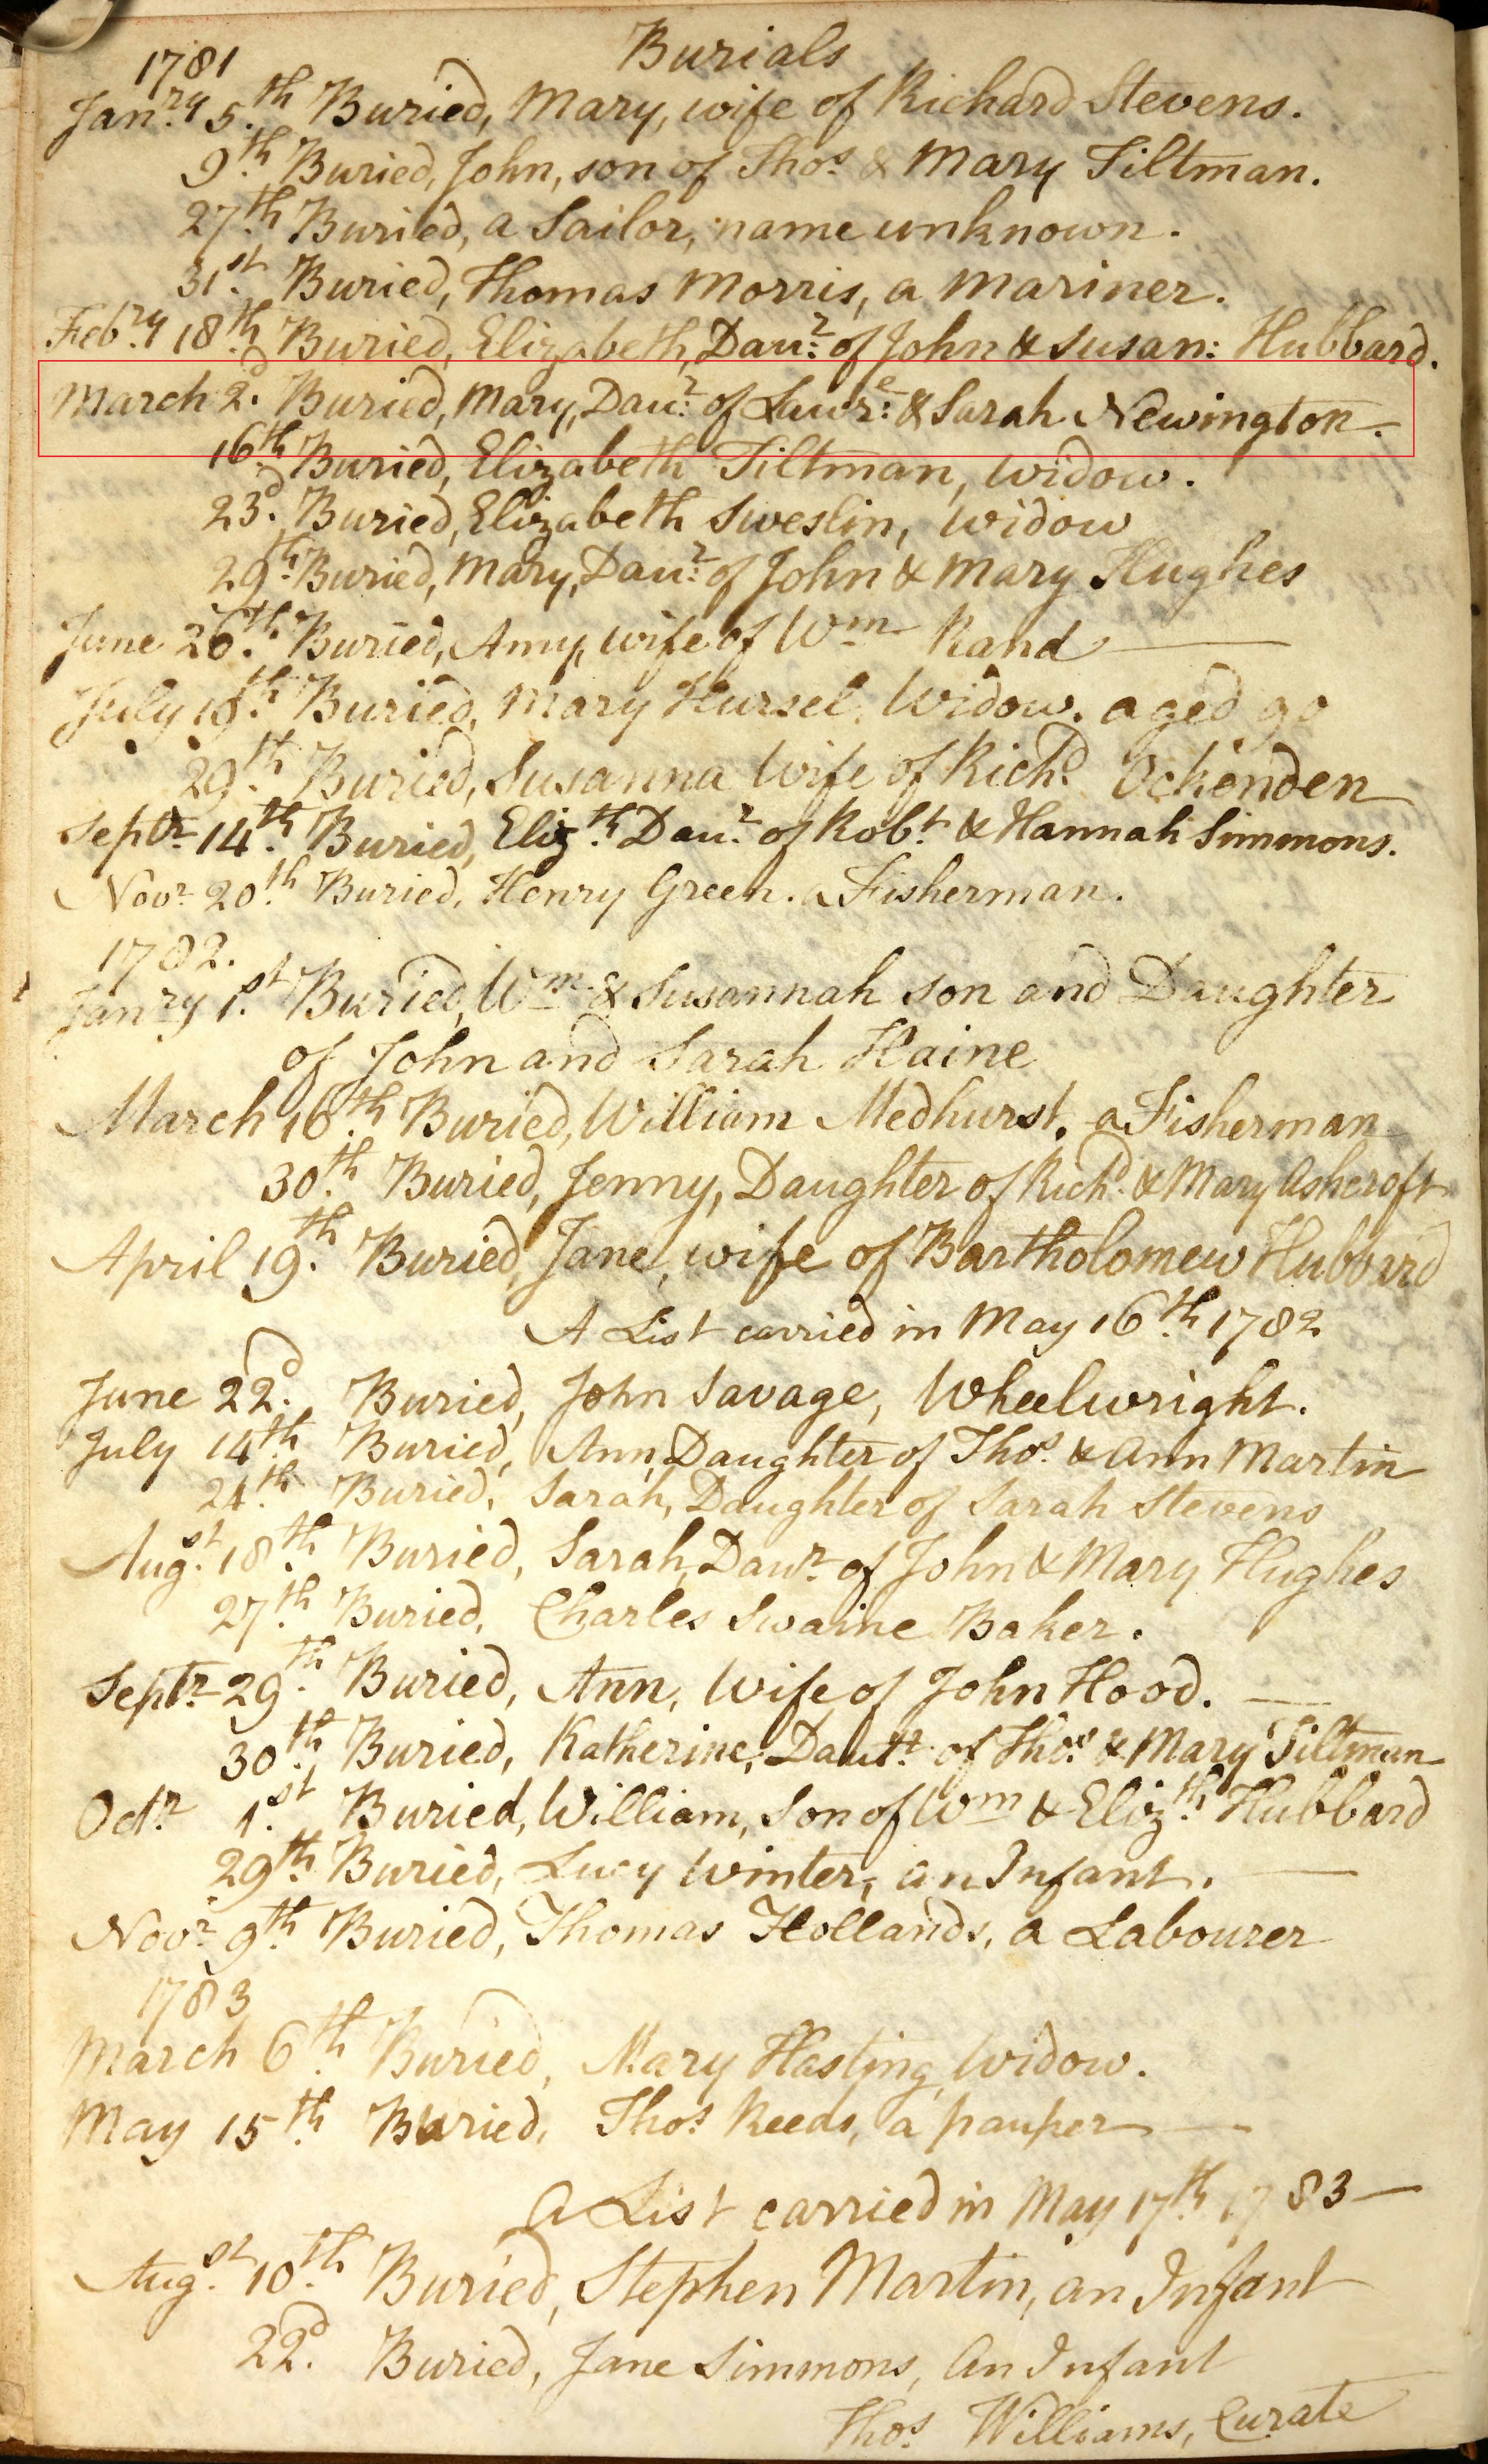 Burials
1781
Janry 5th Buried, Mary, wife of Richard Stevens.
9th Buried, John, son of Thos & Mary Tiltman.
27th Buried, a Sailor, name unknown.
31st Buried, Thomas Morris, a Mariner.
Febry 18th Buried, Elizabeth, Daur of John & Susan: Hubbard.
March 2d Buried, Mary, Daur of Lawre: & Sarah Newington.
16th Buried, Elizabeth Tiltman, Widow.
23d Buried, Elizabeth Sweslin, Widow
29th Buried, Mary, Daur of John & Mary Hughes
June 26th Buried, Amy, wife of Wm Rand
July 18th Buried, Mary Hursel, Widow. aged 90
29th Buried, Susanna Wife of Richd Ockenden
Septr 14th Buried, Elizth Daur of Robt & Hannah Simmons.
Novr 20th Buried, Henry Green. a Fisherman.
1782.
Janry 1st Buried, Wm & Susannah son and Daughter
of John and Sarah Haine
March 16th Buried, William Medhurst, a Fisherman
30th Buried, Jenny, Daughter of Richd & Mary Ashcroft
April 19th Buried, Jane, wife of Bartholomew Hubbard
A List carried in May 16th 1782
June 22d Buried, John Savage, Wheelwright.
July 14th Buried, Ann, Daughter of Thos & Ann Martin
24th Buried, Sarah, Daughter of Sarah Stevens
Augst 18th Buried, Sarah, Daur of John & Mary Hughes
27th Buried, Charles Swaine Baker.
Septr 29th Buried, Ann, Wife of John Hood.
30th Buried, Katherine, Dautr of Thos & Mary Tiltman
Octr 1st Buried, William, Son of Wm & Elizth Hubbard
29th Buried, Lucy Winter, an Infant.
Novr 9th Buried, Thomas Hollands, a Labourer
1783
March 6th Buried, Mary Hasting, Widow.
May 15th Buried, Thos Reeds, a pauper
A List carried in May 17th 1783
Augst 10th Buried, Stephen Martin, an Infant
22d Buried, Jane Simmons, An Infant
Thos Williams, Curate